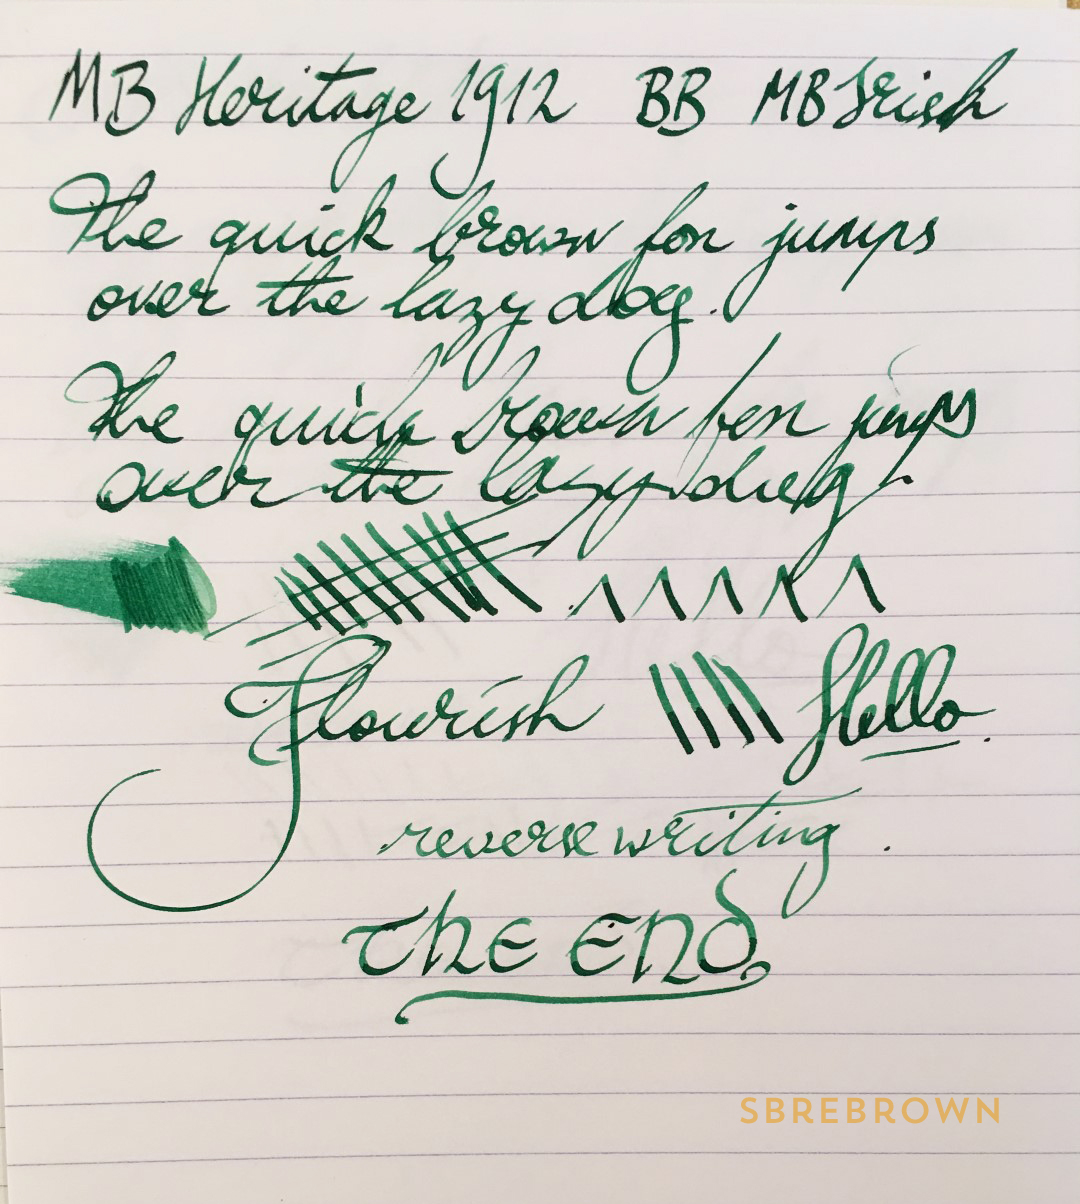 MB Heritage 1912 BB MB Irish
The quick brown fox jumps
over the lazy dog.
The quick brown fox jumps
over the lazy dog.
Flourish Hello.
reverse writing.
THE END
SBREBROWN